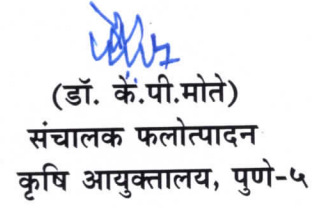 (डॉ. कें.पी.मोते)
संचालक फलोत्पादन
कृषि आयुक्तालय, पुणे-५